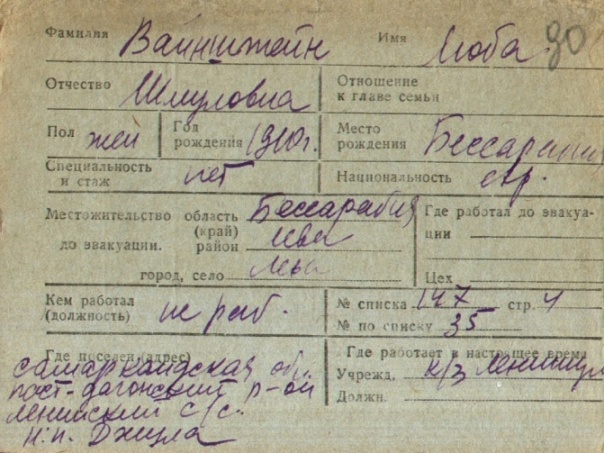 Фамилия Вайнштейн Имя Люба 90
Отчество Шмуловна Отношение
к главе семьи
Пол жен Год рождения 1910г. Место рождения Бессарабия
Специальность и стаж нет Национальность евр.
Местожительство область Бессарабия Где работал до эвакуа-
(край) ции
до эвакуации. район
город, село Цех
Кем работал (должность) не раб. № списка 147 стр. 4
№ по списку 35
Где поселен (адрес) Где работает в настоящее время
самаркандская обл. Учрежд. к/з
пост-дагонский р-он Должн.
Ленинский с/с.
н.п. Джула